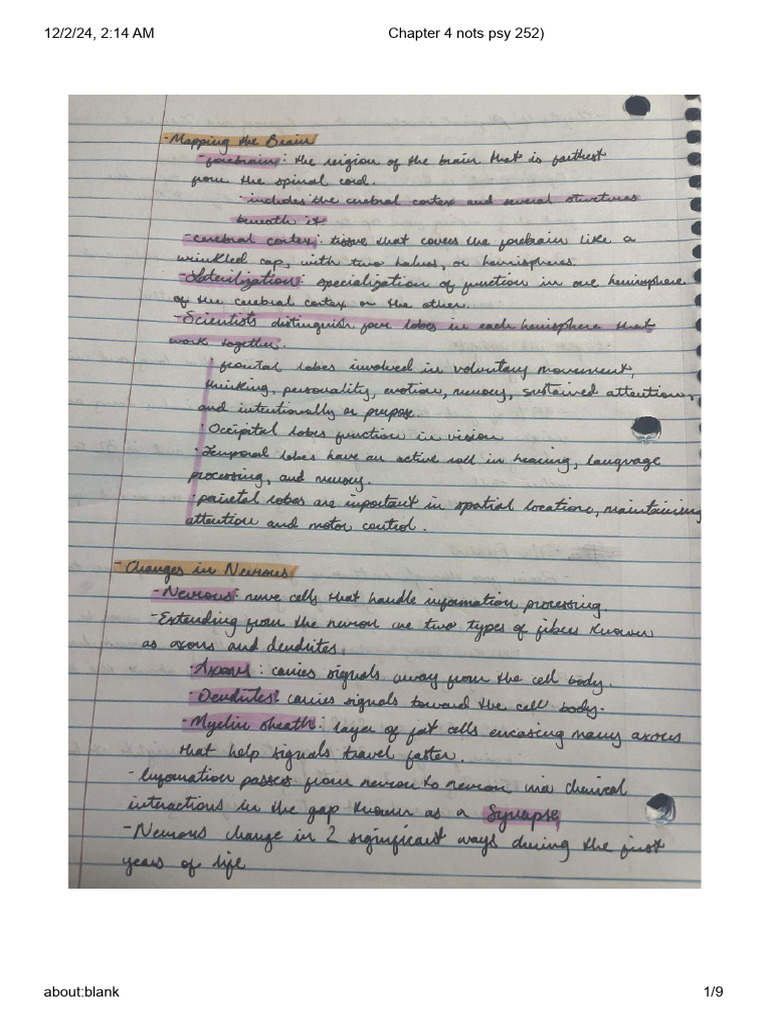 12/2/24, 2:14 AM Chapter 4 nots psy 252)
- Mapping the Brain
- forebrain: the reigion of the brain that is farthest
from the spinal cord.
· includes the cerebral cortex and several structures
beneath it
- cerebral cortex: tissue that covers the forebrain like a
wrinkled cap, with two halves, or hemispheres.
- Laterilization: specialization of function in one hemisphere
of the cerebral cortex or the other.
- Scientists distinguish four lobes in each hemisphere that
work together.
· frontal lobes involved in voluntary movement,
thinking, personality, emotion, memory, sustained attention,
and intentionally or purpose.
· Occipital lobes function in vision
· Temporal lobes have an active roll in hearing, language
processing, and memory.
· parietal lobes are important in spatial location, maintaining
attention and motor control.
- Changes in Neurons
- Neurons: nerve cells that handle information processing.
- Extending from the neuron are two types of fibers known
as axons and dendrites.
· Axons: carries signals away from the cell body.
· Dendrites: carries signals toward the cell body.
· Myelin sheath: layer of fat cells encasing many axons
that help signals travel faster.
- Information passes from neuron to neuron via chemical
interactions in the gap known as a Synapse,
- Neurons change in 2 significant ways during the first
years of life
about:blank 1/9